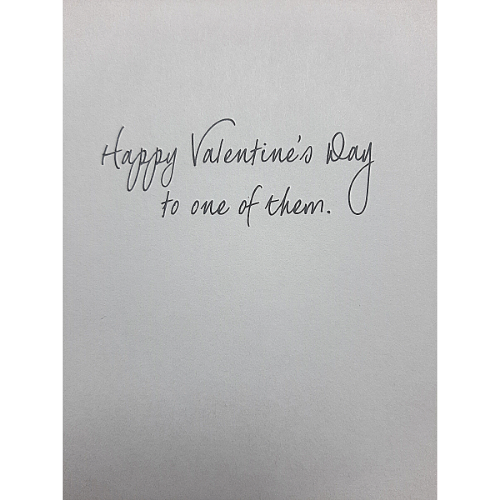 Happy Valentine's Day
to one of them.